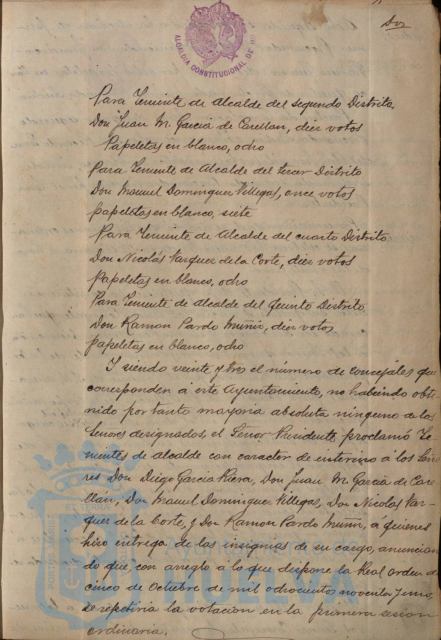 Dos
ALCALDIA CONSTITUCIONAL DE
Para Teniente de Alcalde del segundo Distrito
Don Juan M. Garcia de Carellan, diez votos
Papeletas en blanco, ocho
Para Teniente de Alcalde del tercer Distrito
Don Manuel Dominguez Villegas, once votos
papeletas en blanco, siete
Para Teniente de Alcalde del cuarto Distrito
Don Nicolás Vazquez de la Corte, diez votos
papeletas en blanco, ocho
Para Teniente de Alcalde del Quinto Distrito
Don Ramon Pardo Muñiz, diez votos
papeletas en blanco, ocho
Y siendo veinte y tres el número de concejales que
corresponden á este Ayuntamiento, no habiendo obte
nido por tanto mayoria absoluta ninguno de los
Señores designados, el Señor Presidente proclamó Te
nientes de alcalde con caracter de interino á los Seño
res Don Diego Garcia Riera, Don Juan M. Garcia de Care
llan, Don Manuel Dominguez Villegas, Don Nicolás Vaz-
quez de la Corte, y Don Ramon Pardo Muñiz, a quienes
hizo entrega de las insignias de su cargo, anuncian
do que, con arreglo á lo que dispone la Real orden de
cinco de Octubre de mil ochocientos noventa y uno,
se repetiria la votacion en la primera sesion
ordinaria.